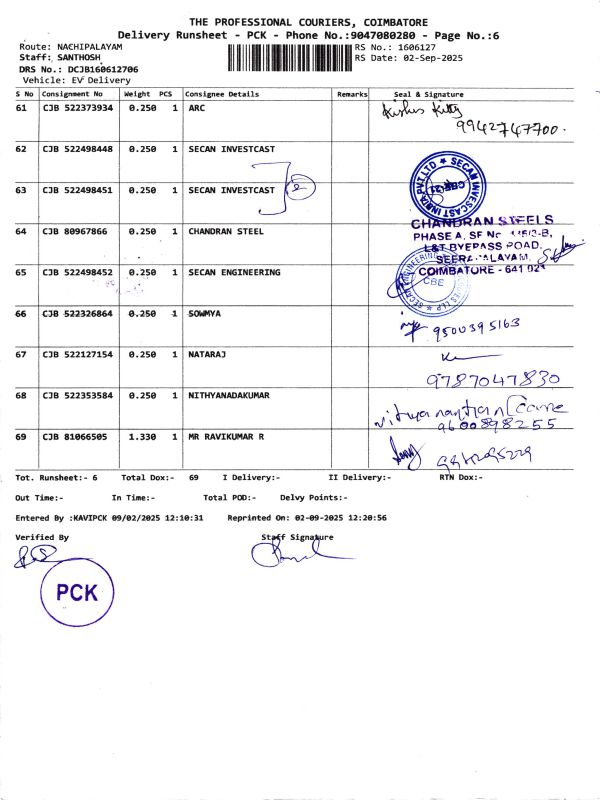 THE PROFESSIONAL COURIERS, COIMBATORE
Delivery Runsheet - PCK - Phone No.:9047080280 - Page No.:6
Route: NACHIPALAYAM
RS No.: 1606127
Staff: SANTHOSH
RS Date: 02-Sep-2025
DRS No.: DCJB160612706
Vehicle: EV Delivery
S No Consignment No Weight PCS Consignee Details Remarks Seal & Signature
61 CJB 522373934 0.250 1 ARC
9942747700.
62 CJB 522498448 0.250 1 SECAN INVESTCAST
63 CJB 522498451 0.250 1 SECAN INVESTCAST 2
SECAN INVESCAST INDIA PVT LTD
CBE-21
64 CJB 80967866 0.250 1 CHANDRAN STEEL
CHANDRAN STEELS
PHASE A, SF No
L&T BYEPASS ROAD,
COIMBATORE - 641 021
65 CJB 522498452 0.250 1 SECAN ENGINEERING
CBE
66 CJB 522326864 0.250 1 SOWMYA
9500395163
67 CJB 522127154 0.250 1 NATARAJ
9787047830
68 CJB 522353584 0.250 1 NITHYANADAKUMAR
9600898255
69 CJB 81066505 1.330 1 MR RAVIKUMAR R
Tot. Runsheet:- 6 Total Dox:- 69 I Delivery:- II Delivery:- RTN Dox:-
Out Time:- In Time:- Total POD:- Delvy Points:-
Entered By :KAVIPCK 09/02/2025 12:10:31 Reprinted On: 02-09-2025 12:20:56
Verified By Staff Signature
PCK